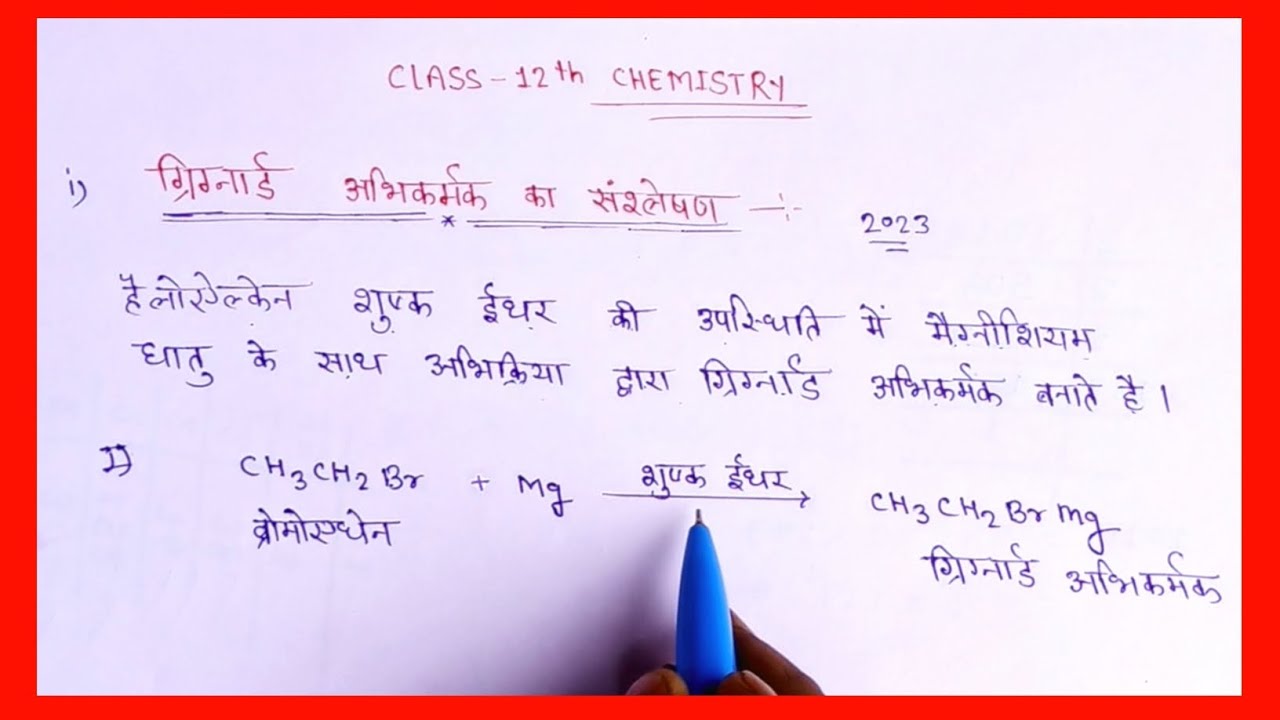 CLASS - 12th CHEMISTRY
i) ग्रिग्नार्ड अभिकर्मक का संश्लेषण -:-
2023
हैलोऐल्केन शुष्क ईथर की उपस्थिति में मैग्नीशियम
धातु के साथ अभिक्रिया द्वारा ग्रिग्नार्ड अभिकर्मक बनाते है।
I) CH3CH2Br + Mg शुष्क ईथर → CH3CH2BrMg
ब्रोमोएथेन ग्रिग्नार्ड अभिकर्मक